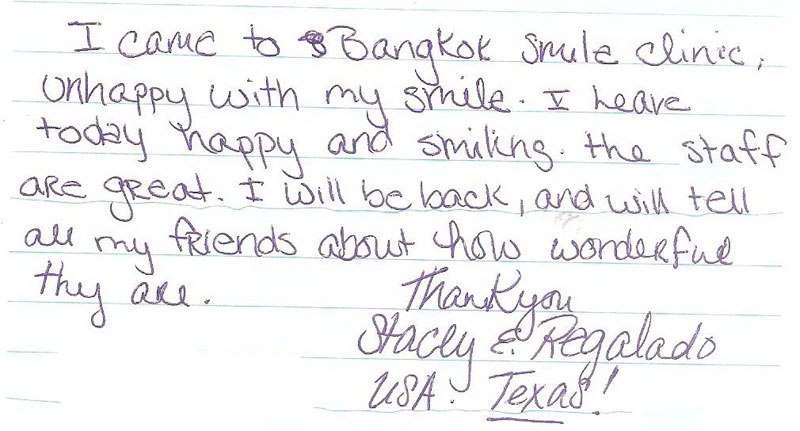 I came to Bangkok Smile clinic,
unhappy with my smile. I leave
today happy and smiling. the staff
are great. I will be back, and will tell
all my friends about how wonderful
they are.
Thank you
Stacey E. Regalado
USA. Texas!